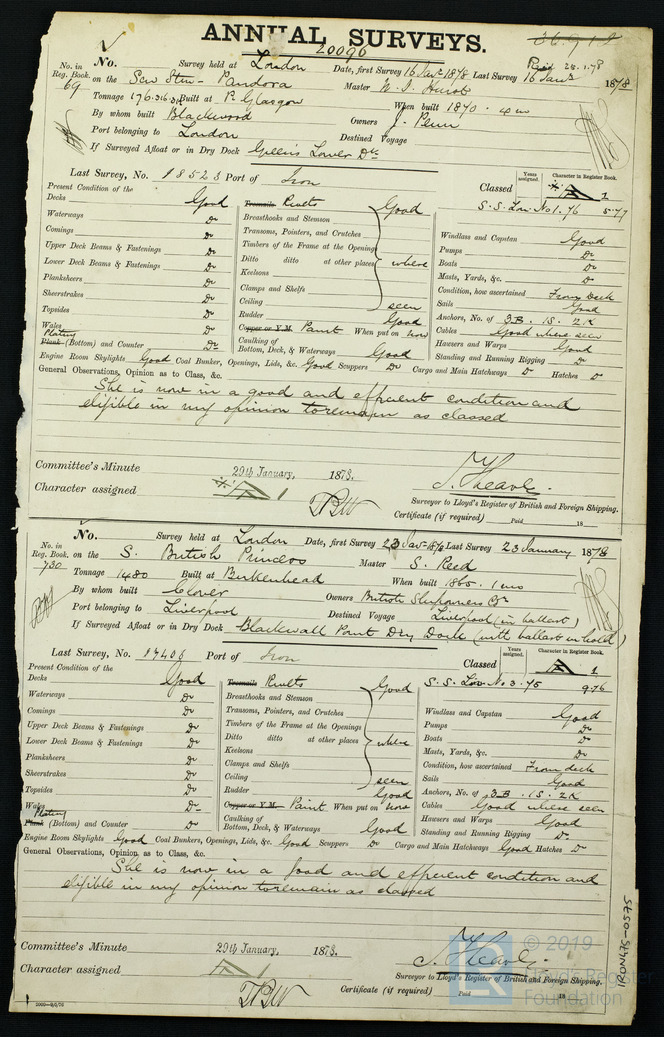 ANNUAL SURVEYS.
20096
36.912
No. in Reg. Book. 69
No. Survey held at London Date, first Survey 16 Jany 1878 Last Survey 16 Jany 1878
Paid 28.1.78
on the Scw Stmr Pandora Master
Tonnage 176.316 Built at Pt Glasgow When built 1870 . 4 mo
By whom built Blackwood Owners J. Penn
Port belonging to London Destined Voyage
If Surveyed Afloat or in Dry Dock Greens Lower Dk
Last Survey, No. 18523 Port of Iron
Classed
Years assigned.
Character in Register Book.
A 1
S.S. Lon. No 1. 76 5.77
Present Condition of the
Decks Good
Waterways Do
Comings Do
Upper Deck Beams & Fastenings Do
Lower Deck Beams & Fastenings Do
Planksheers Do
Sheerstrakes Do
Topsides Do
Wales Do
Plating
Plank (Bottom) and Counter Do
Treenails Rivets Good
Breasthooks and Stemson
Transoms, Pointers, and Crutches
Timbers of the Frame at the Openings
Ditto ditto at other places where
Keelsons
Clamps and Shelfs
Ceiling seen
Rudder Good
Copper or Y.M. Paint When put on now
Caulking of Bottom, Deck, & Waterways Good
Windlass and Capstan Good
Pumps Do
Boats Do
Masts, Yards, &c. Do
Condition, how ascertained From Deck
Sails Good
Anchors, No. of 3B. 1S. 2K
Cables Good where seen
Hawsers and Warps Good
Standing and Running Rigging Do
Engine Room Skylights Good Coal Bunker, Openings, Lids, &c. Good Scuppers Do Cargo and Main Hatchways Do Hatches Do
General Observations, Opinion as to Class, &c.
She is now in a good and efficient condition and
eligible in my opinion to remain as classed
Committee's Minute 29th January, 1878.
Character assigned A 1
Surveyor to Lloyd's Register of British and Foreign Shipping.
Certificate (if required) Paid 18
No. in Reg. Book. 730
No. Survey held at London Date, first Survey 23 Jany 1878 Last Survey 23 January 1878
on the S. British Princess Master S. Reed
Tonnage 1480 Built at Birkenhead When built 1865 . 1 mo
By whom built Clover Owners British Shipowners Co
Port belonging to Liverpool Destined Voyage Liverpool (in ballast)
If Surveyed Afloat or in Dry Dock Blackwall Point Dry Dock (with ballast in hold)
Last Survey, No. 17406 Port of Iron
Classed
Years assigned.
Character in Register Book.
A 1
S.S. Lon. No 3. 75 9.76
Present Condition of the
Decks Good
Waterways Do
Comings Do
Upper Deck Beams & Fastenings Do
Lower Deck Beams & Fastenings Do
Planksheers Do
Sheerstrakes Do
Topsides Do
Wales Do
Plating
Plank (Bottom) and Counter Do
Treenails Rivets Good
Breasthooks and Stemson
Transoms, Pointers, and Crutches
Timbers of the Frame at the Openings
Ditto ditto at other places where
Keelsons
Clamps and Shelfs
Ceiling seen
Rudder Good
Copper or Y.M. Paint When put on now
Caulking of Bottom, Deck, & Waterways Good
Windlass and Capstan Good
Pumps Do
Boats Do
Masts, Yards, &c. Do
Condition, how ascertained From deck
Sails Good
Anchors, No. of 3B. 1S. 2K
Cables Good where seen
Hawsers and Warps Good
Standing and Running Rigging Do
Engine Room Skylights Good Coal Bunkers, Openings, Lids, &c. Good Scuppers Do Cargo and Main Hatchways Good Hatches Do
General Observations, Opinion as to Class, &c.
She is now in a good and efficient condition and
eligible in my opinion to remain as classed
Committee's Minute 29th January, 1878.
Character assigned A 1
Surveyor to Lloyd's Register of British and Foreign Shipping.
Certificate (if required) Paid 18
IRON475-0575
© 2019
Lloyd's Register
Foundation